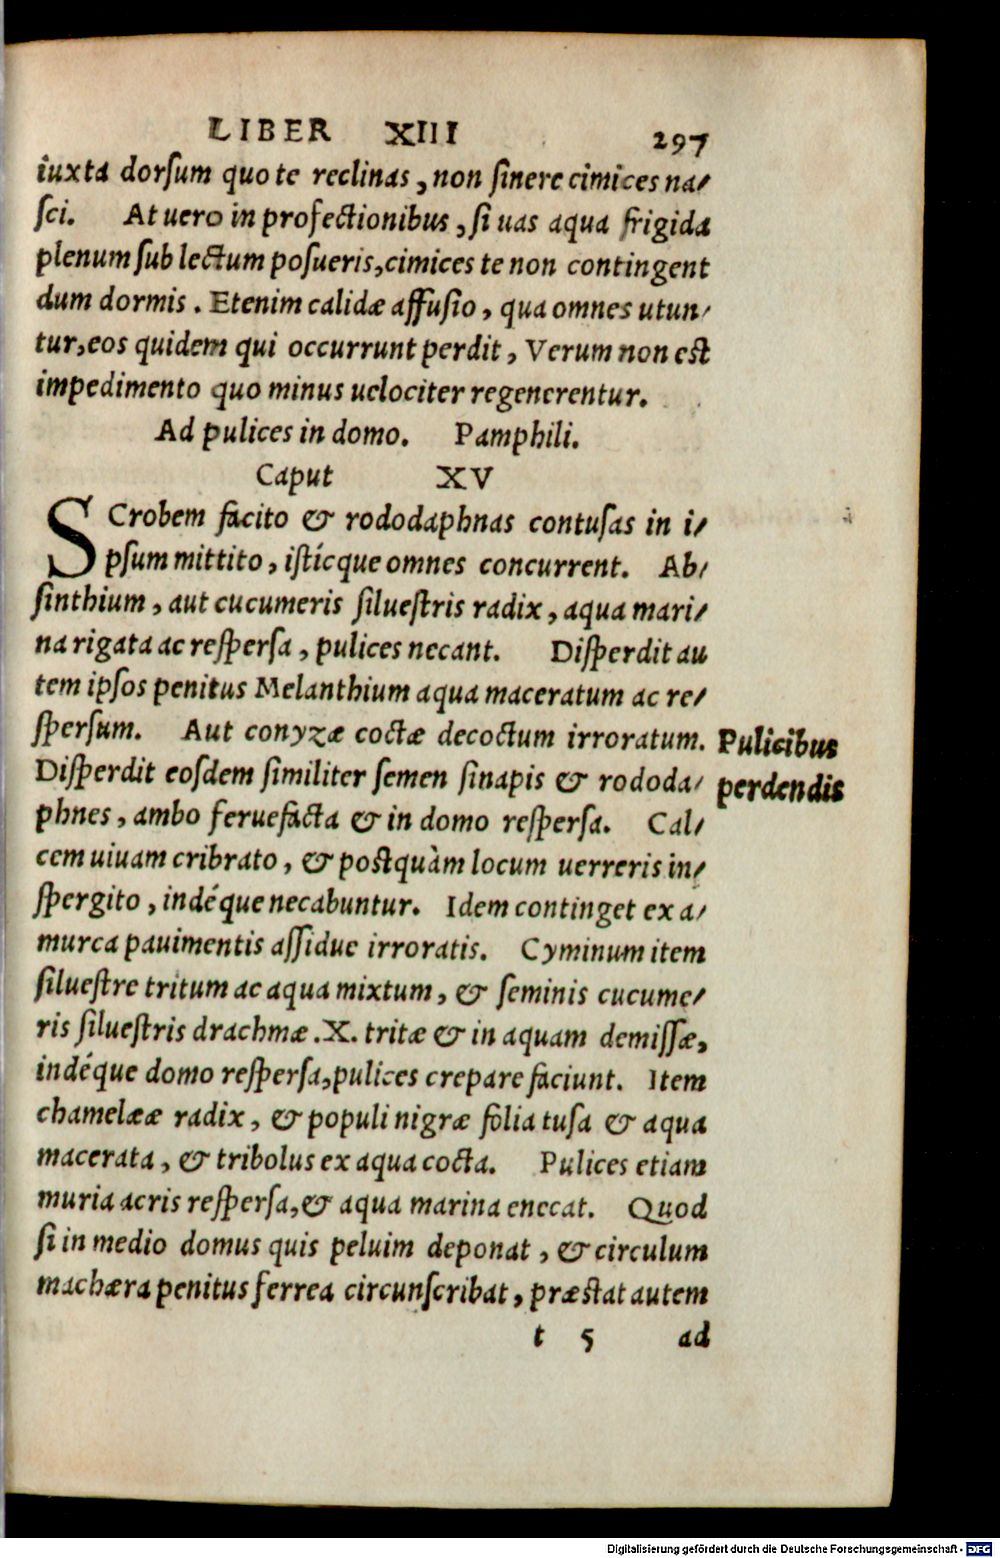 LIBER XIII 297
iuxta dorsum quo te reclinas, non sinere cimices na/
sci. At uero in profectionibus, si uas aqua frigida
plenum sub lectum posueris, cimices te non contingent
dum dormis. Etenim calidæ affusio, qua omnes utun/
tur, eos quidem qui occurrunt perdit, Verum non est
impedimento quo minus uelociter regenerentur.
Ad pulices in domo. Pamphili.
Caput XV
SCrobem facito & rododaphnas contusas in i/
psum mittito, istícque omnes concurrent. Ab/
sinthium, aut cucumeris siluestris radix, aqua mari/
na rigata ac respersa, pulices necant. Disperdit au
tem ipsos penitus Melanthium aqua maceratum ac re/
spersum. Aut conyzæ coctæ decoctum irroratum.
Disperdit eosdem similiter semen sinapis & rododa/
phnes, ambo feruefacta & in domo respersa. Cal/
cem uiuam cribrato, & postquàm locum uerreris in/
spergito, indéque necabuntur. Idem continget ex a/
murca pauimentis assidue irroratis. Cyminum item
siluestre tritum ac aqua mixtum, & seminis cucume/
ris siluestris drachmæ .X. tritæ & in aquam demissæ,
indéque domo respersa, pulices crepare faciunt. Item
chamelææ radix, & populi nigræ folia tusa & aqua
macerata, & tribolus ex aqua cocta. Pulices etiam
muria acris respersa, & aqua marina enecat. Quod
si in medio domus quis peluim deponat, & circulum
machæra penitus ferrea circunscribat, præstat autem
t 5 ad
Pulicibus
perdendis
Digitalisierung gefördert durch die Deutsche Forschungsgemeinschaft - DFG